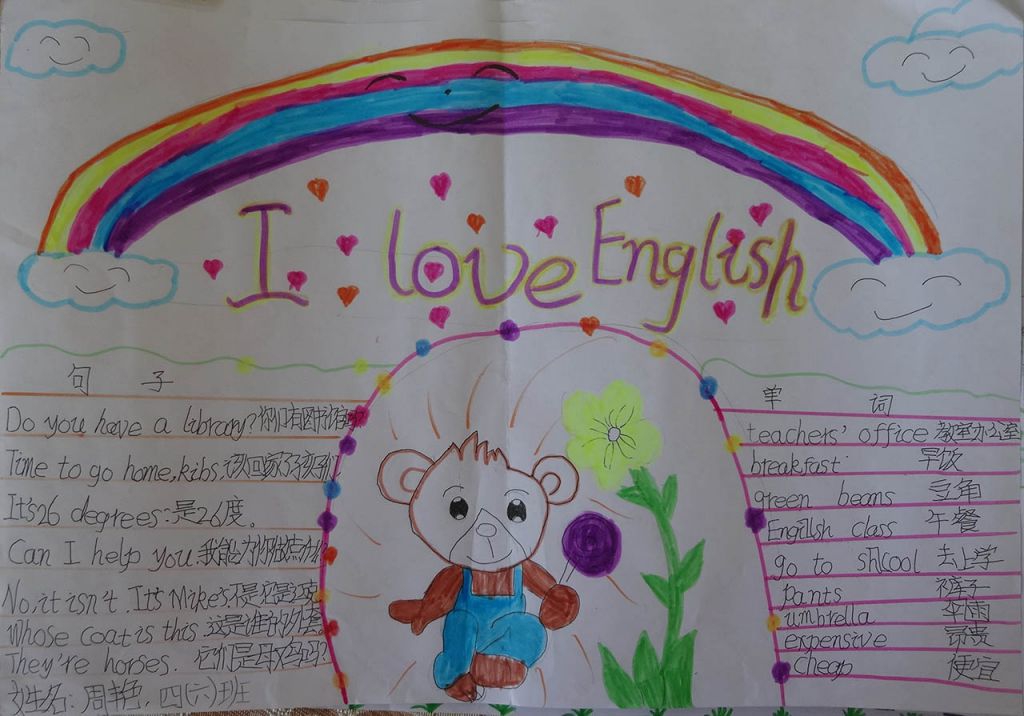 I love English
句 子
Do you have a library?你们有图书馆
Time to go home,kibs.该回家了孩子们
It's 26 degrees:是26度。
Can I help you.我能为你做点什
No,it isn't. It's Mike's.不是.是
Whose coat is this.这是谁的外套
They're horses. 它们是母马吗?
姓名:周 四(六)班
单 词
teachers' office 教室办公室
breakfast 早饭
green beans 豆角
English class 午餐
go to shcool 去上学
pants 裤子
umbrella 伞雨
expensive 贵
cheap 便宜